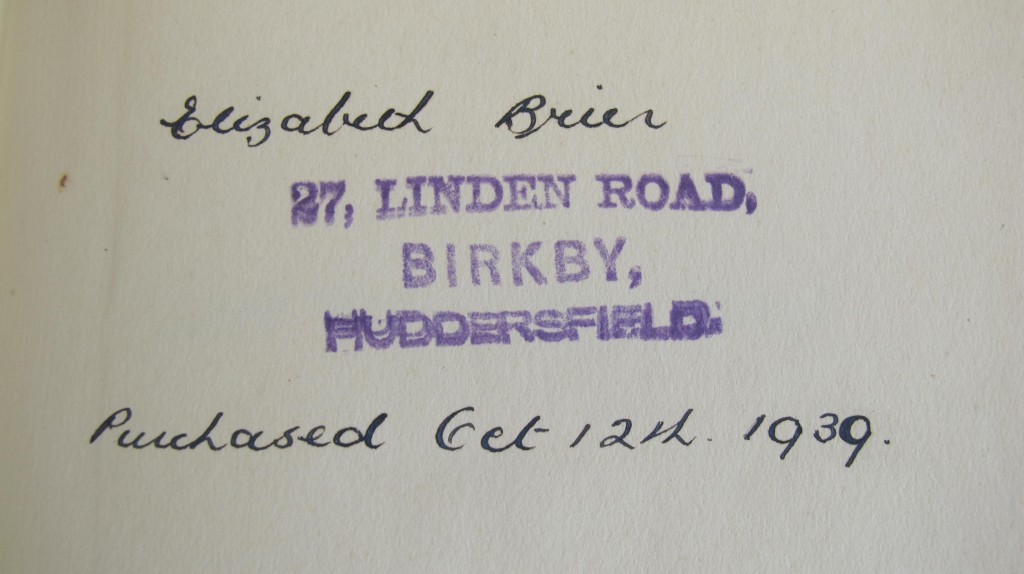 Elizabeth Brier
27, LINDEN ROAD,
BIRKBY,
HUDDERSFIELD.
Purchased Oct 12th. 1939.